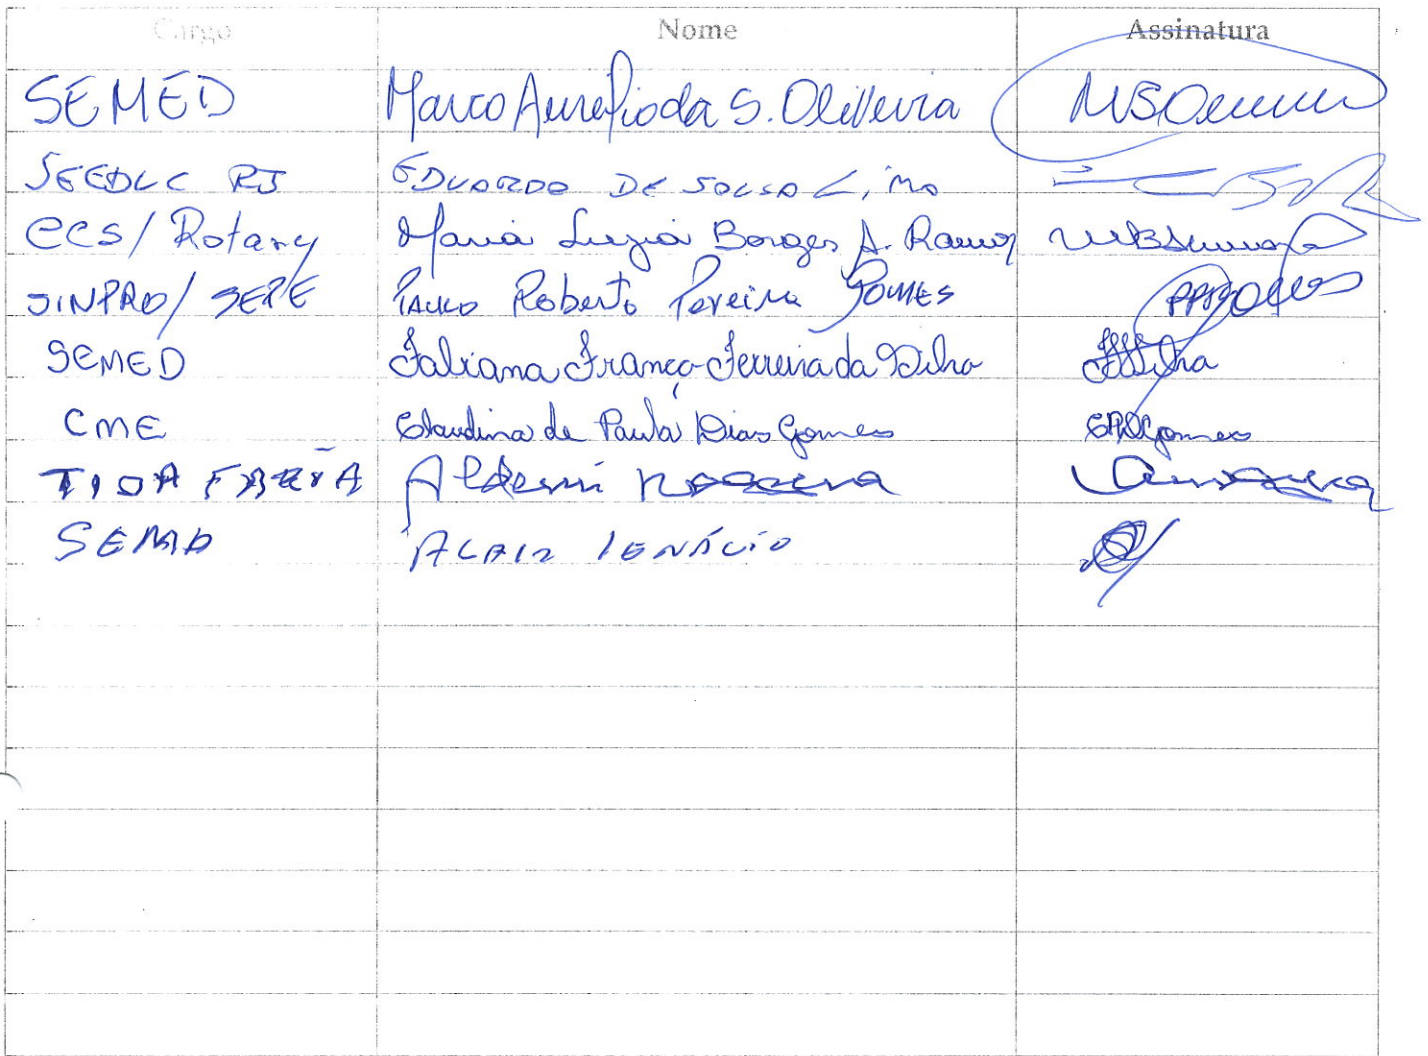 Cargo Nome Assinatura
SEMED Marco Aurelio da S. Oliveira
SEEDUC RJ EDUARDO DE SOUSA Lima
CCS/Rotary Maria Luzia Borges A. Ramos
SINPRO/SEPE PAULO Roberto Pereira GOMES
SEMED Fabiana Franco Ferreira da Silva FFFSilva
CME Claudina de Paula Dias Gomes CPDGomes
Aldemi
ALAIR IGNÁCIO